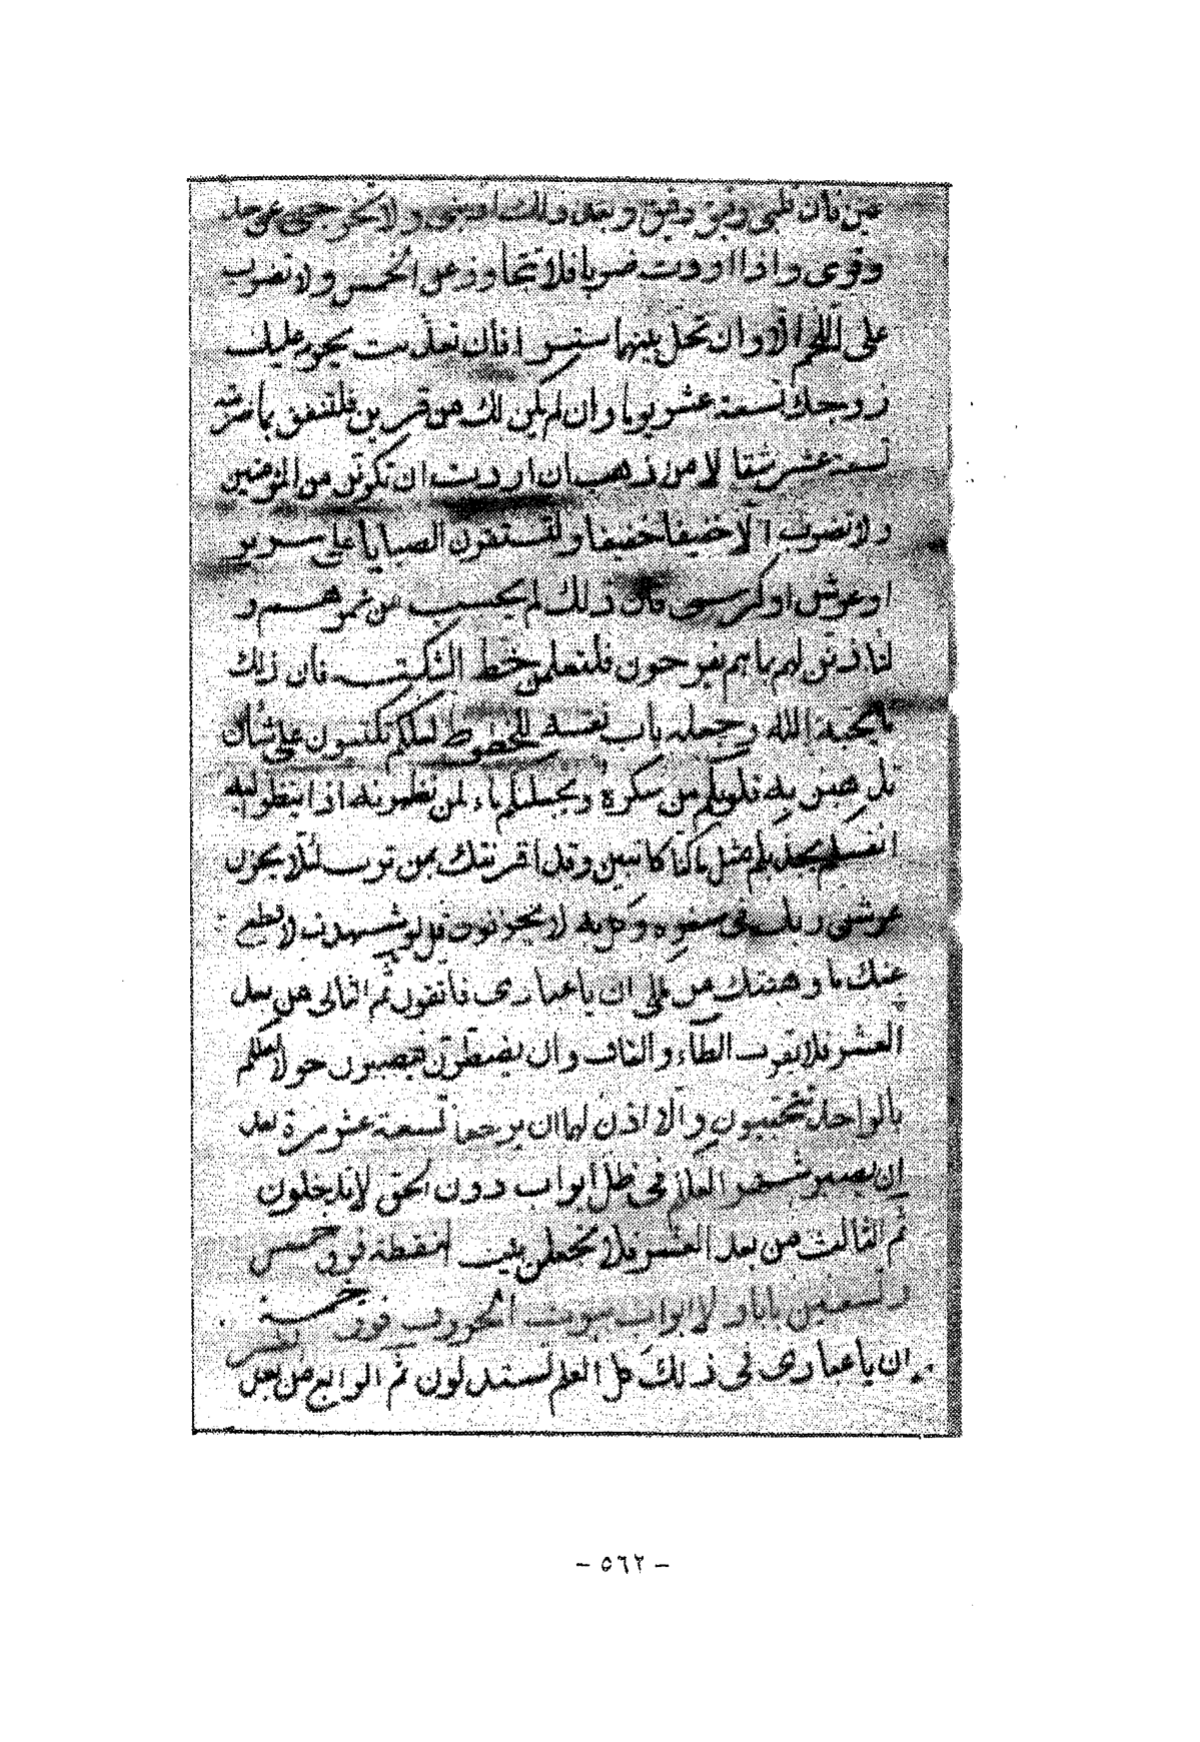 عين فان قلبى رقيق رقيق وبعد ذلك ادبنى ولا تخرجنى عن حد
وقرى واذا اردت ضربا فلا تتجاوز عن الخمس ولا تضرب
على اللحم الا وان تحل بينهما ستر افان تعديت يحرم عليك
زوجك تسعة عشر يوما وان لم يكن لك من قرين فلتنفق بما ضربته
تسعة عشر مثقالا من ذهب ان اردت ان تكونن من المؤمنين
ولا تضرب الا خفيفا خفيفا ولتستقرن الصبايا على سرير
او عرش او كرسى فان ذلك لم يحسب من عمرهم و
لتأذنن لهم بما هم يفرحون فلتعلمن خط الشكسته فان ذلك
ما يحبه الله وجعله باب نفسه للخطوط لعلكم تكتبون على شأن
تذهبن به قلوبكم من سكره ويجعلنكم ماء لمن نظهرنه اذا ينظر اليه
انفسكم يجذبكم مثل ما كنا كاتبين وقد اقرنتك بمن ترب لئلا يحزن
عرش ربك فى صغره وكل به لا يحزنون قل لو شهدت لا قطع
عنك ما وهبتك من ملك ان يا عبادى فاتقون ثم الثانى من بعد
العشر فلا يقرب الطاء والقاف وان يضطرن فيصبرن حولا لعلكم
بالواحد تحتجبون والا اذن لهما ان يرجعا تسعة عشر مرة بعد
ان يصبر شهرا لعلكم فى ظل ابواب دون الحق لا تدخلون
ثم الثالث من بعد العشر فلا تجعلن بيت النقطة فوق خمس
وتسعين بابا ولا ابواب بيوت الحروف فوق خمسة
ان يا عبادى فى ذلك كل العلم تستدلون ثم الرابع من بعد العشر
- ٥٦٢ -